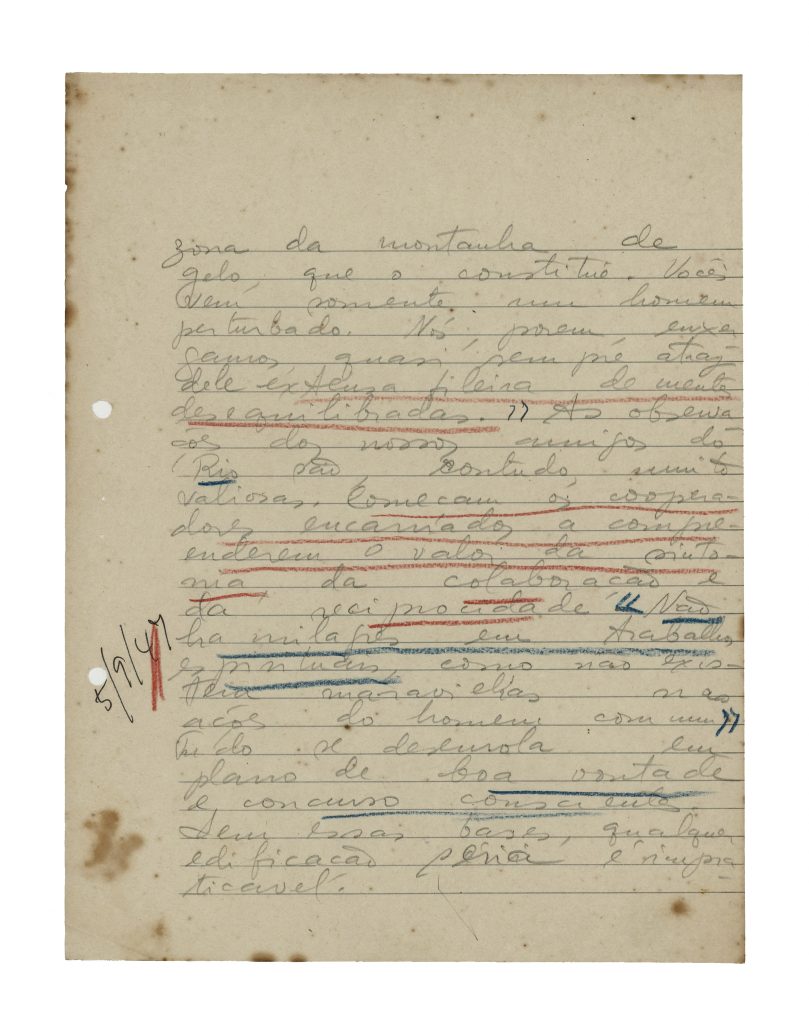 zona da montanha de
gelo, que o constitúe. Vocês
vem somente um homem
perturbado. Nós, porem enxer
gamos quasi sempre atraz
dele extensa fileira de mentes
desequilibradas. " As observa
ções dos nossos amigos do
Rio são, contudo, muito
valiosas. Começam os coopera-
dores encarnados a compre-
enderem o valor da sinto-
nia da colaboração e
da reciprocidade "Não
ha milagres em trabalhos
espirituais como não exis-
tem maravilhas nas
ações do homem commum"
Tudo se desenrola em
plano de boa vontade
e concurso consciente.
Sem essas bases, qualquer
edificação séria é impra
ticavel.
5/9/47